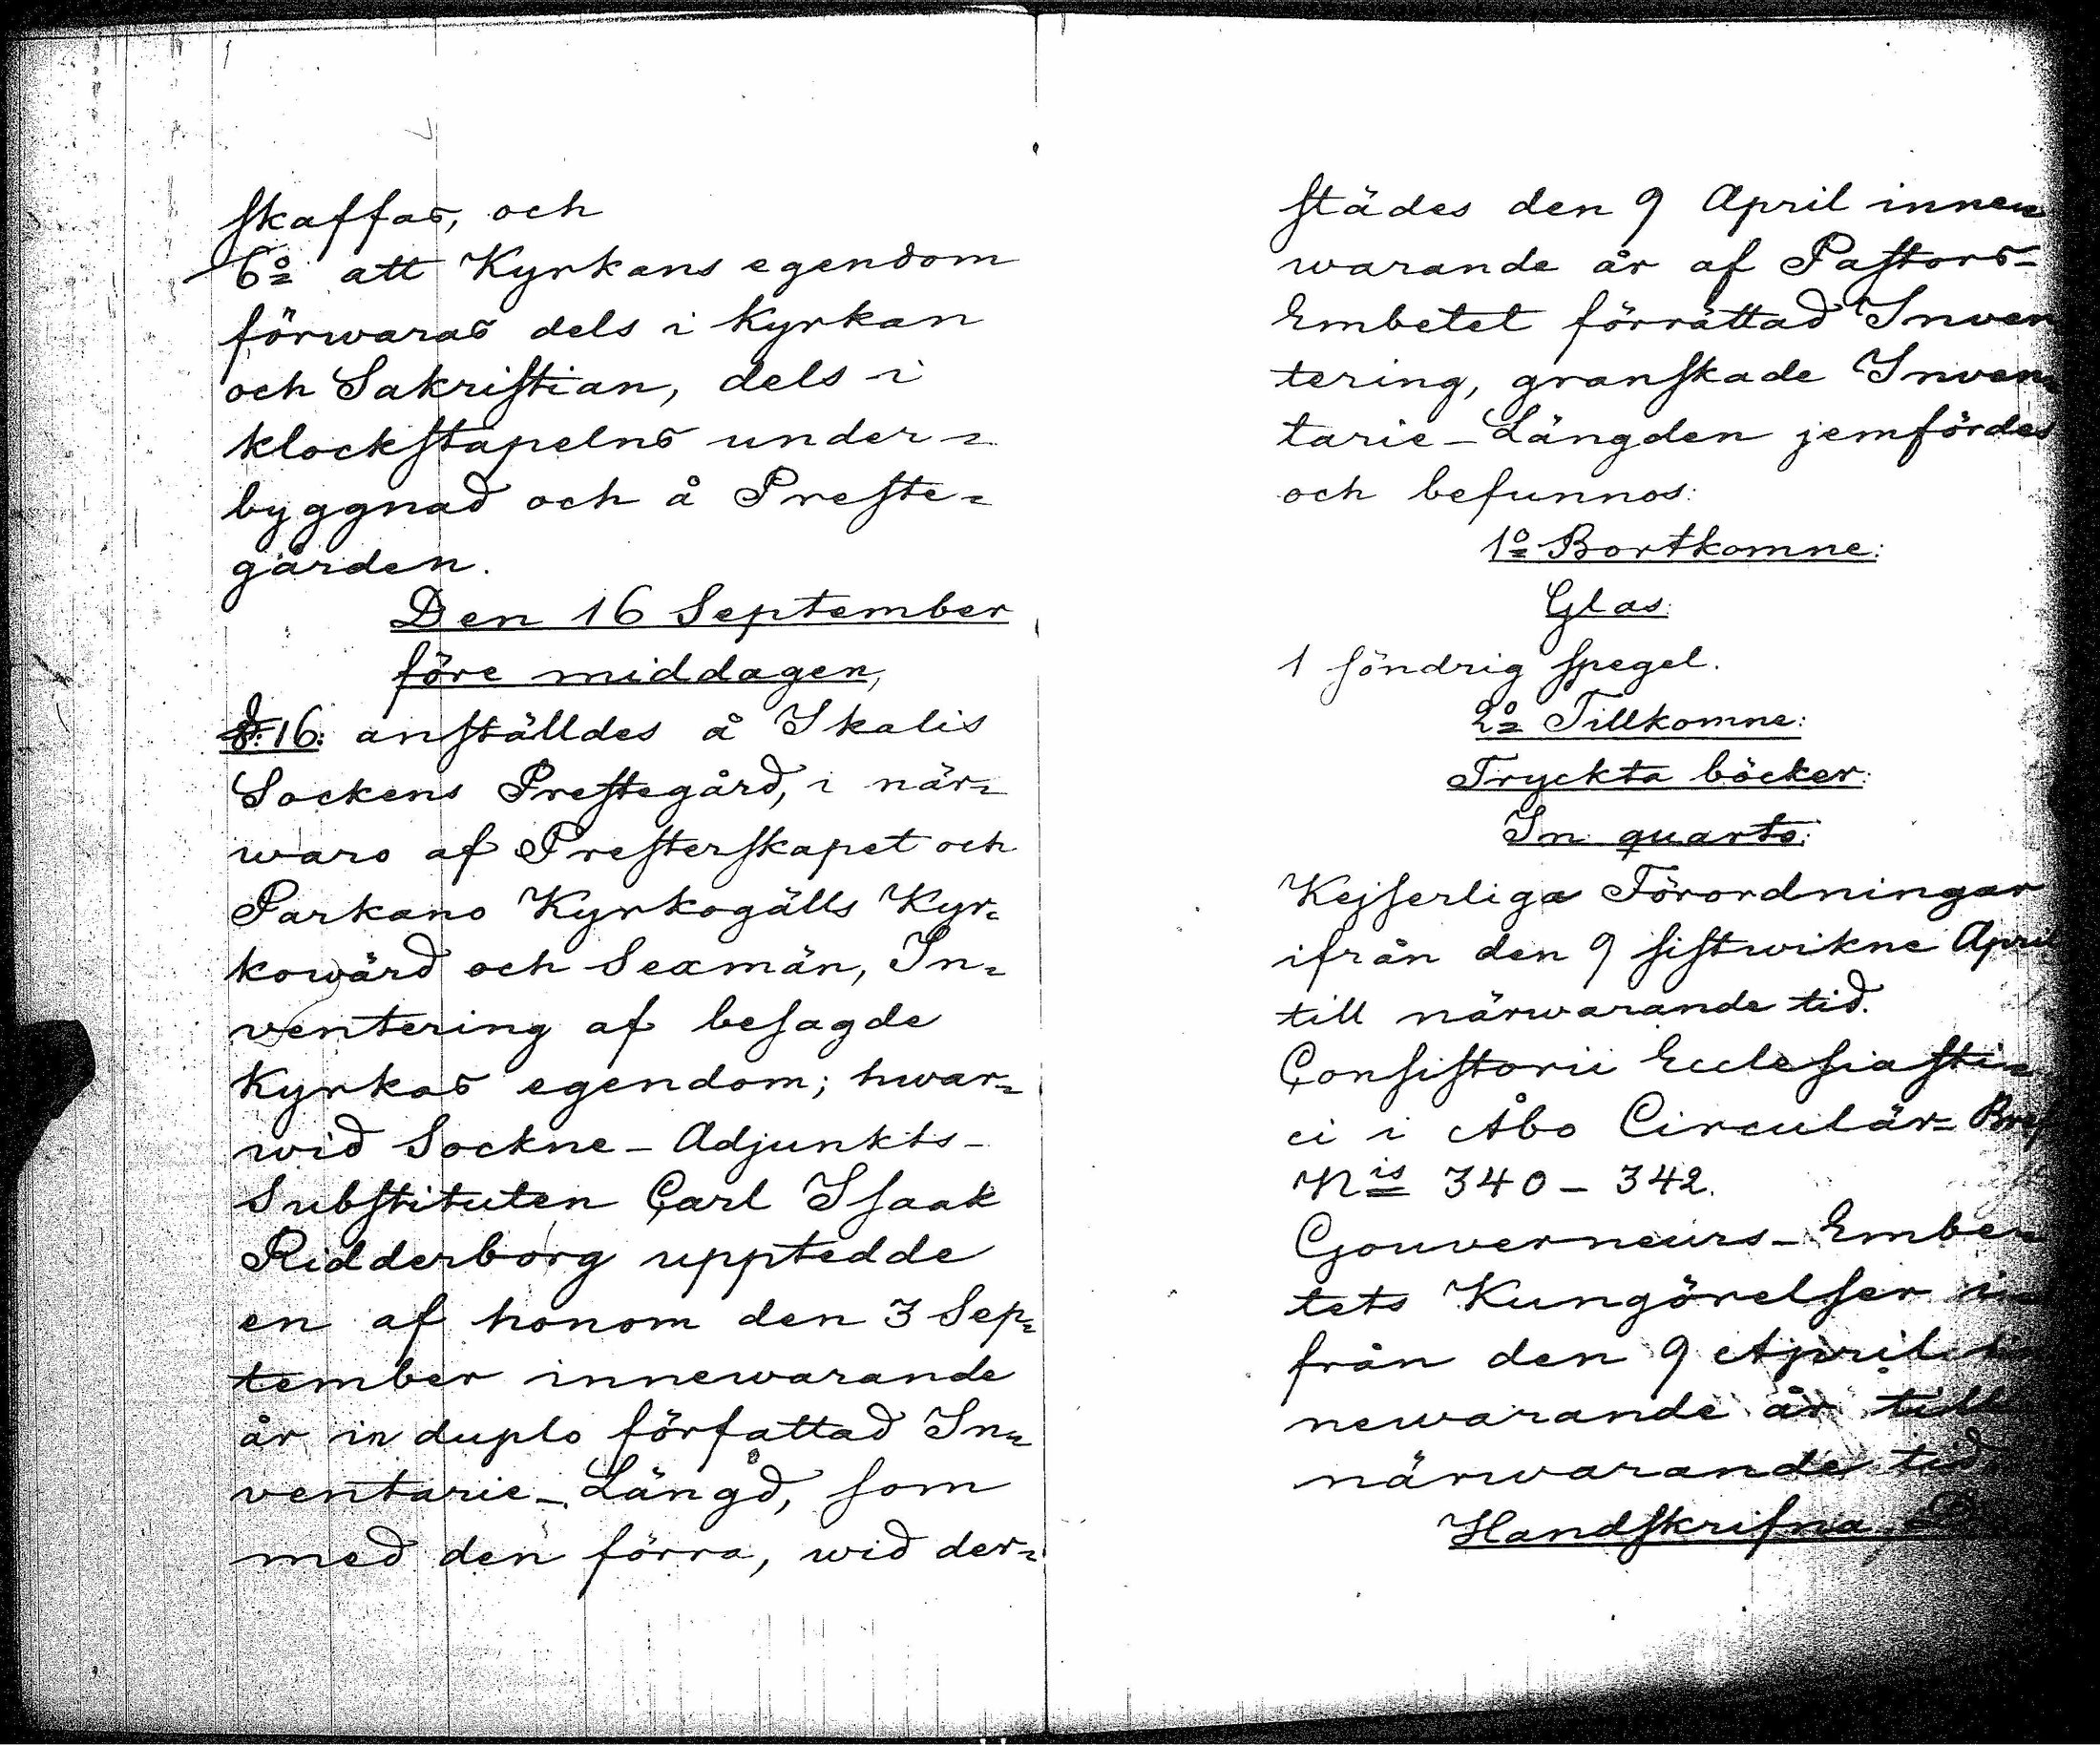 skaffas, och
6o att Kyrkans egendom
förwaras dels i Kyrkan
och Sakristian, dels i
klockstapelns under=
byggnad och å Preste=
gården.
Den 16 September
före middagen,
§: 16: anställdes å Ikalis
Sockens Prestegård, i när=
waro af Presterskapet och
Parkano Kyrkogälls Kyr=
kowärd och Sexmän, In=
ventering af besagde
Kyrkas egendom; hwar=
wid Sockne-Adjunkts-
Substituten Carl Isaak
Ridderborg upptedde
en af honom den 3 Sep=
tember innewarande
år in duplo författad In=
ventarie-Längd, som
med den förra, wid der=
städes den 9 April inne=
warande år af Pastors-
Embetet förrättad Inven
tering, granskade Inven=
tarie-Längden jemfördes
och befunnos:
1o Bortkomne:
Glas:
1 söndrig spegel.
2o Tillkomne:
Tryckta böcker:
In quarto:
Kejserliga Förordningar
ifrån den 9 sistwikne April
till närwarande tid.
Consistorii Ecclesiasti=
ci i Åbo Circulär=Bref
Nis 340-342.
Gouverneurs-Embe=
tets Kungörelser i=
från den 9 April in
newarande år till
närwarande tid.
Handskrifna